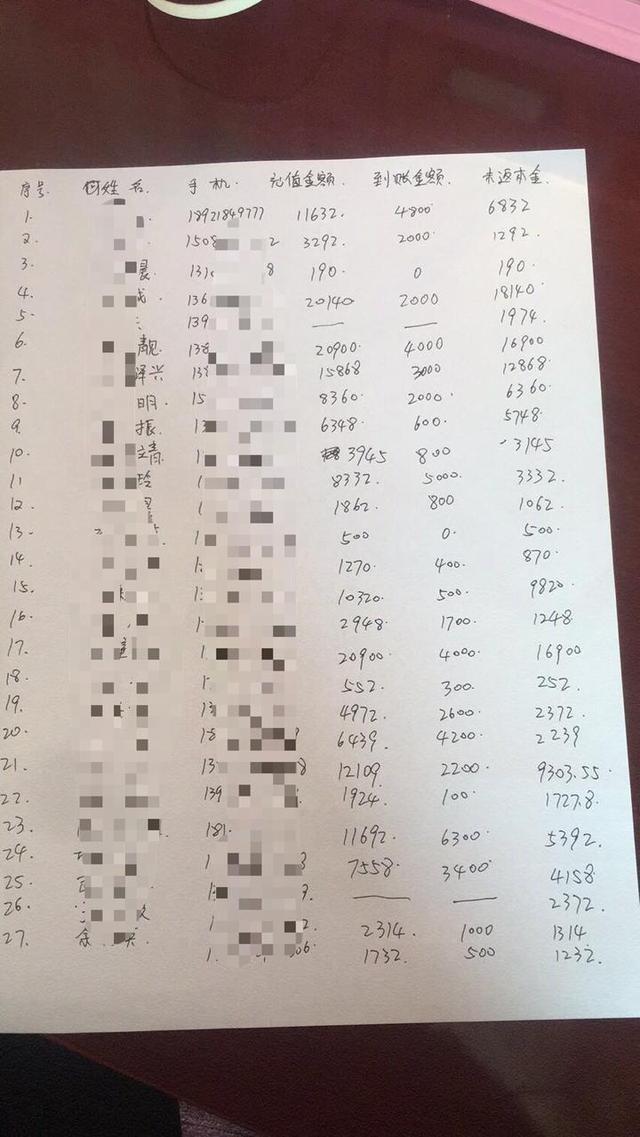 序号. 姓名. 手机. 充值金额. 到账金额. 未返本金.
1. 18921849777 11632. 4800 6832
2. 1508 2 3292. 2000 1292.
3. 晨 131 8 190. 0 190.
4. 成 136 20140 2000 18140
5. 139 — — 1974.
6. 靓 138 20900 4000 16900
7. 泽兴 13 15868 3000 12868
8. 明. 15 8360 2000 6360
9. 振 13 6348 600. 5748
10. 1 3945 800 3145
11 玲 1 8332. 5000. 3332.
12. 1 1862. 800 1062.
13. 1 500 0. 500.
14. 1 1270. 400. 870.
15. 1 10320. 500. 9820.
16. 1 2948 1700. 1248
17. 1 20900 4000. 16900
18. 1 552. 300. 252.
19. 13 4972. 2600. 2372.
20. 18 6439. 4200. 2239
21. 13 8 12109 2200. 9303.55.
22. 139 1924 100. 1727.8
23. 181 11692 6300 5392.
24. 1 3 7558 3400 4158
25. 1 9. — — 2372.
26. 1 2. 2314. 1000 1314
27. 余 1 06 1732. 500 1232.